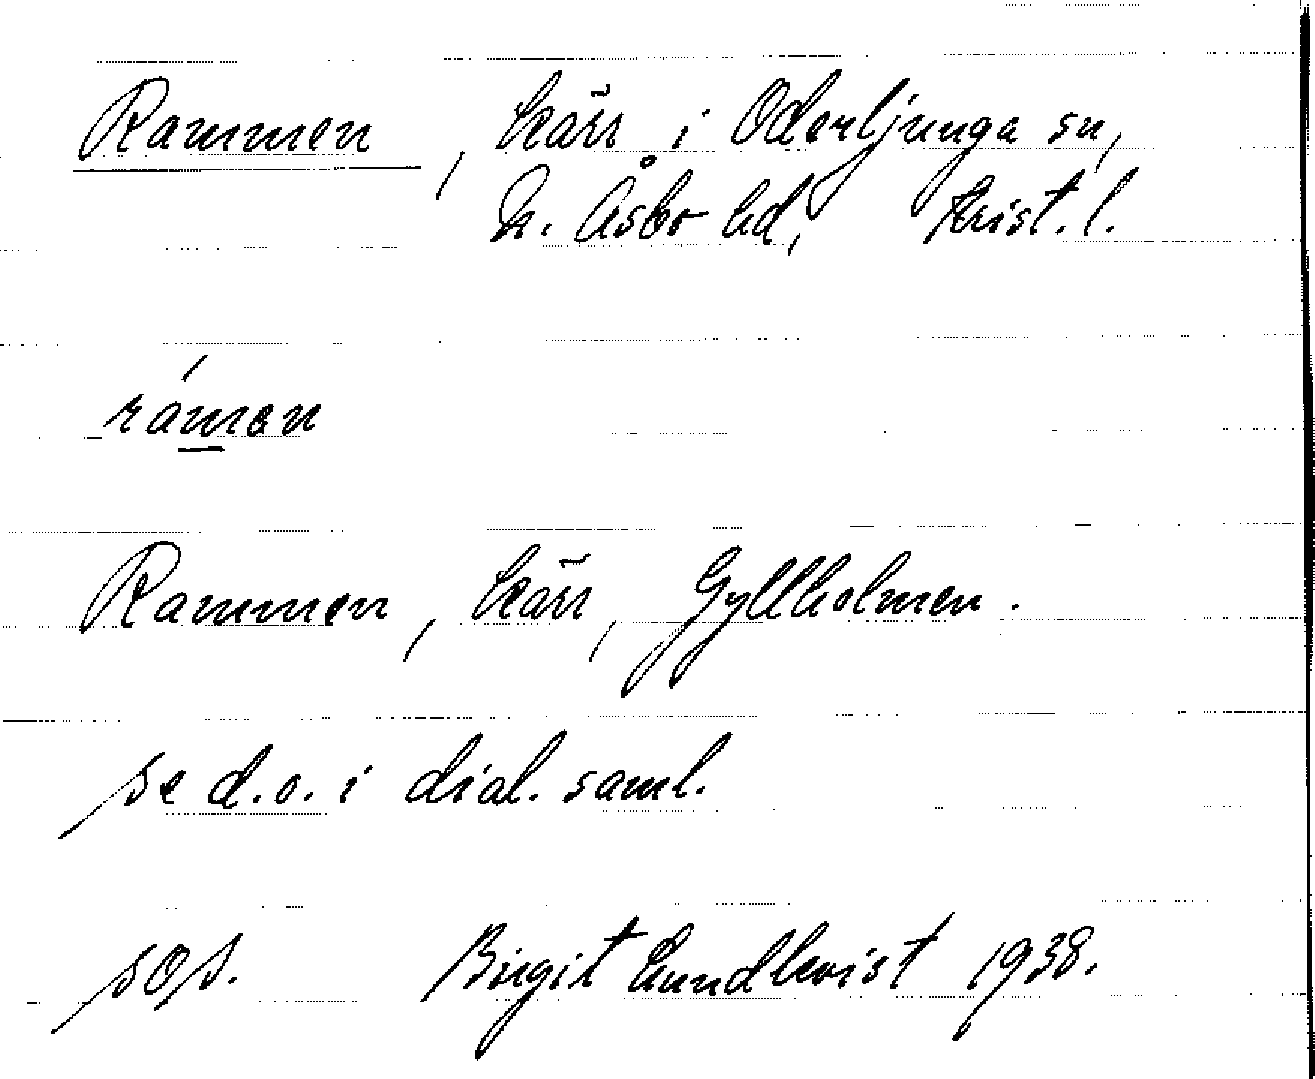 Rammen, kärr i Oderljunga sn,
N. Åsbo hd, Krist. l.
rámen
Rammen, kärr, Gyllholmen.
se d.o. i dial. saml.
sos. Birgit Lundkvist 1938.